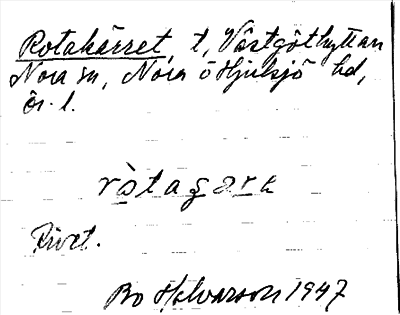 Rotakärret, t, Västgöthyttan
Nora sn, Nora o Hjulsjö hd,
ör. l.
ròtaçark
Rivet.
Bo Halvarson 1947